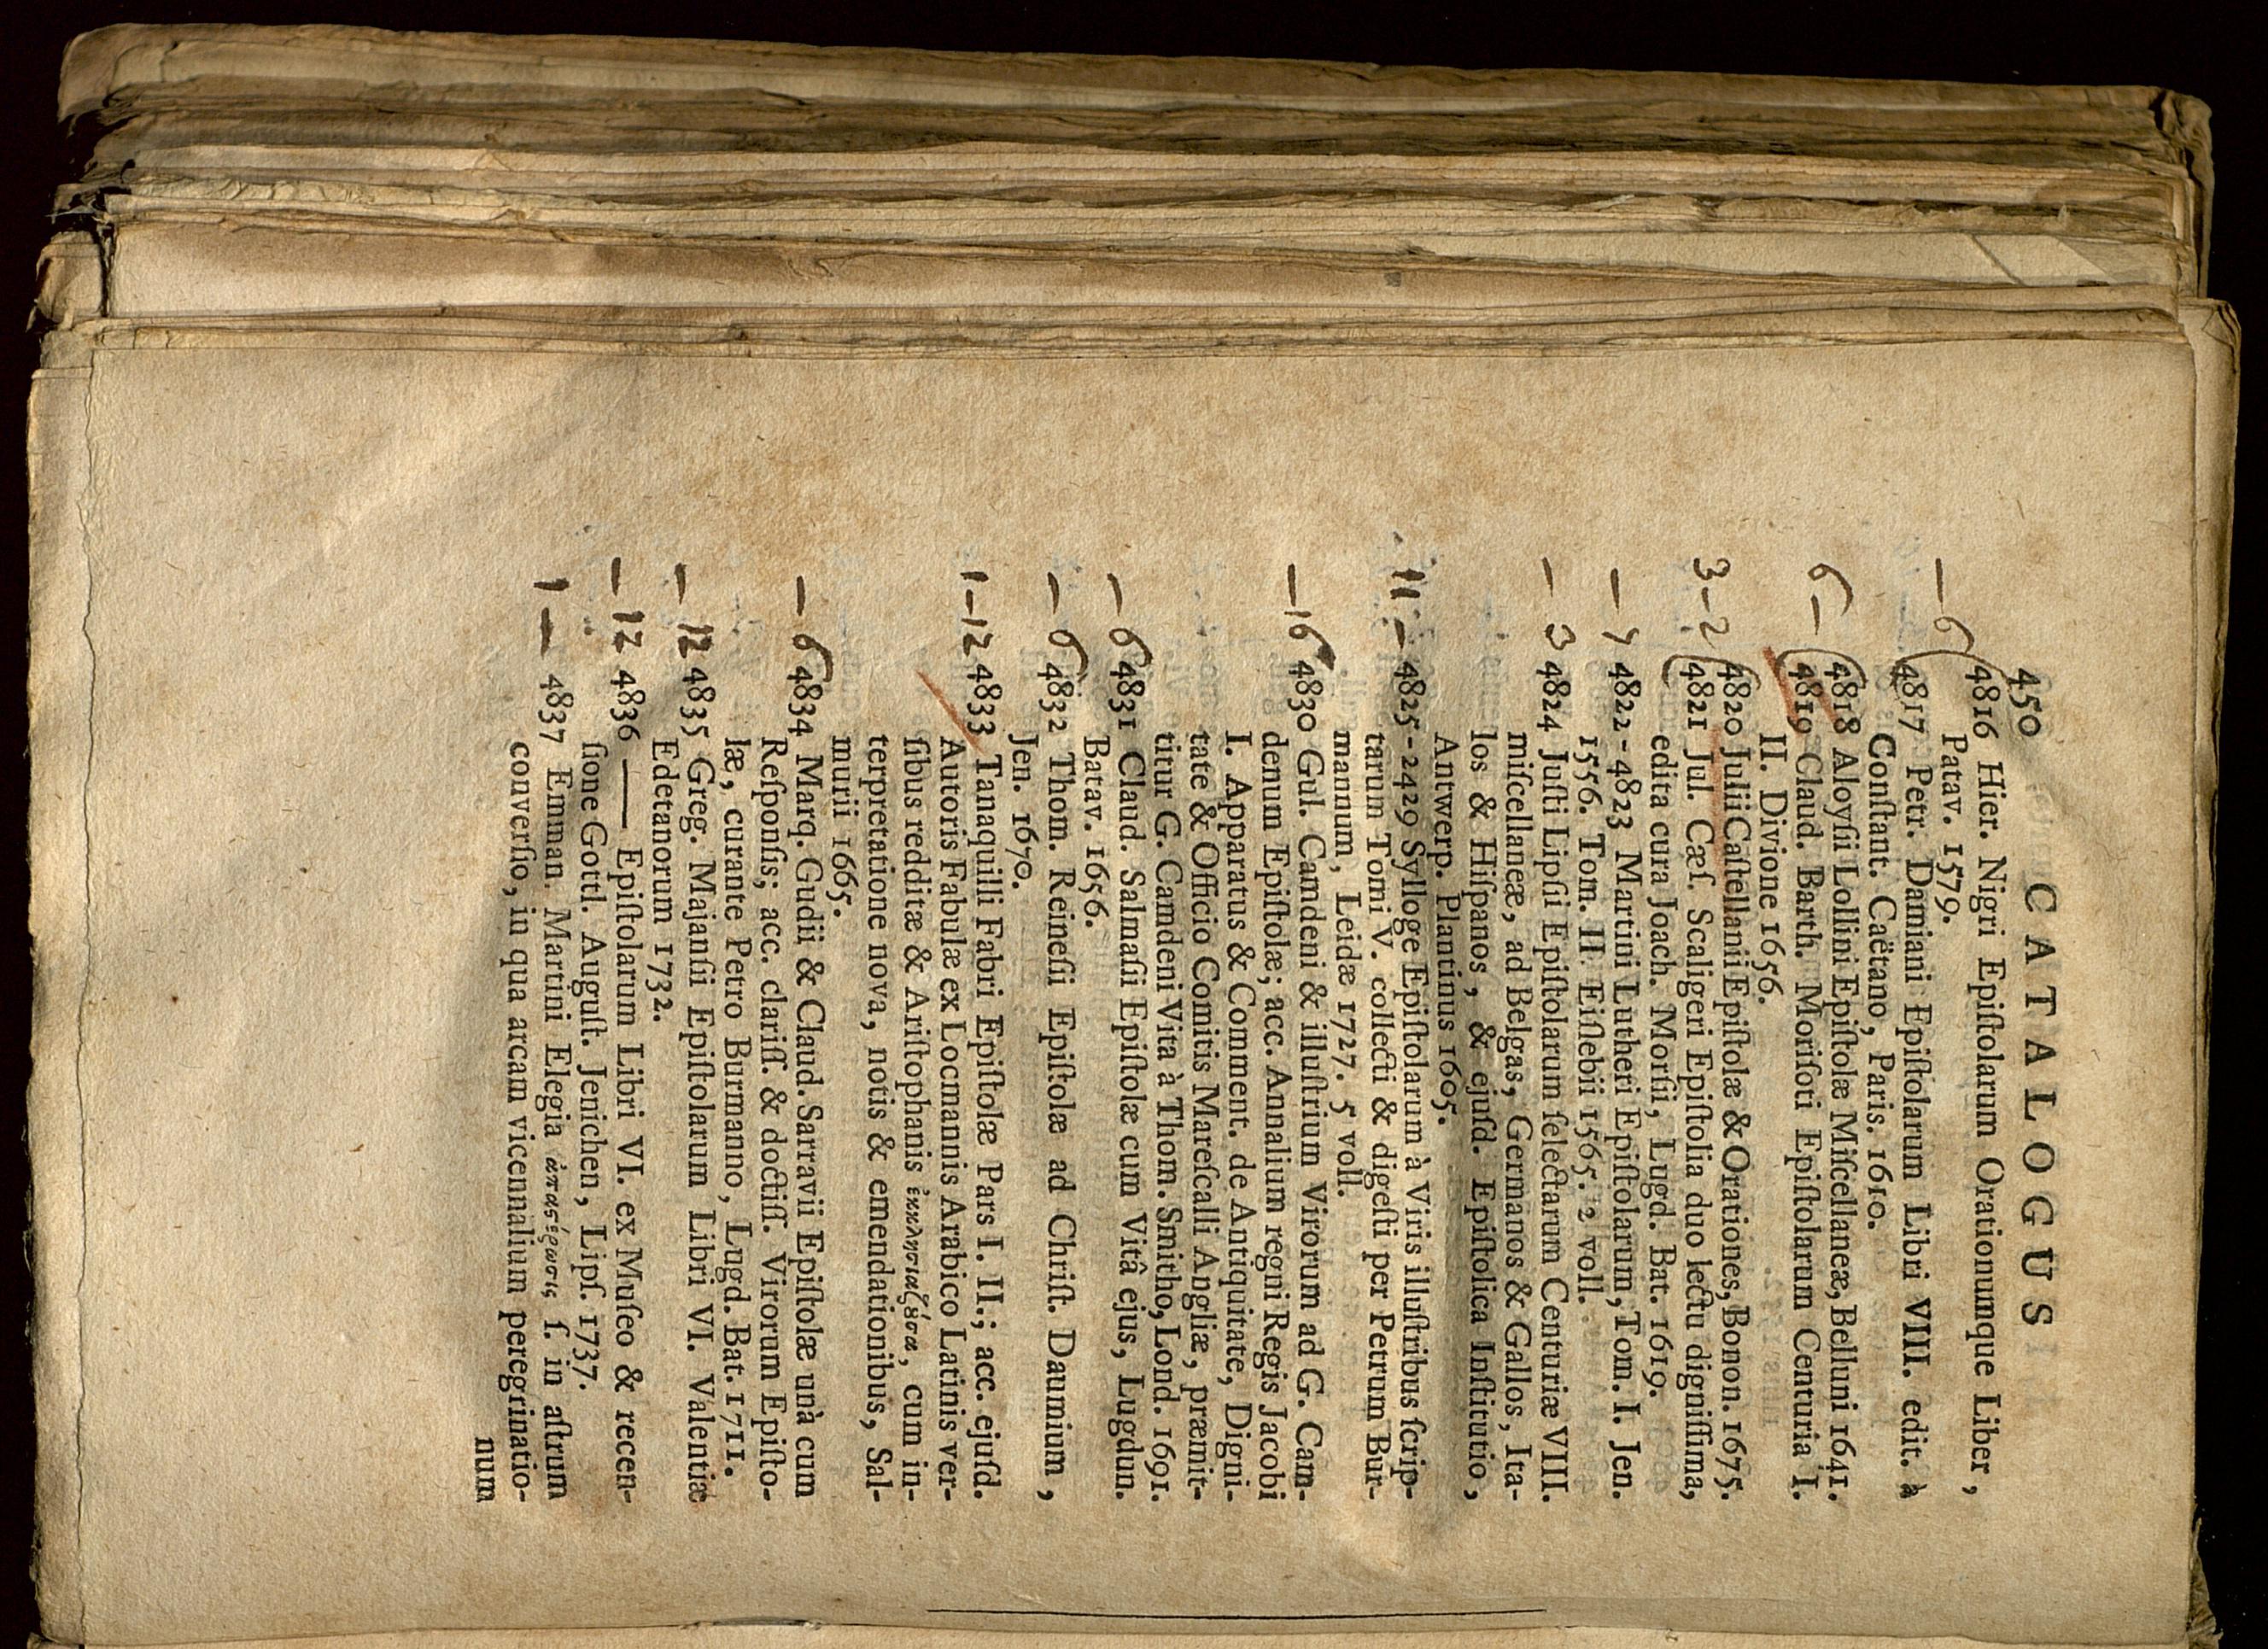 450 CATALOGUS
— 6 4816 Hier. Nigri Epiſtolarum Orationumque Liber,
Patav. 1579.
4817 Petr. Damiani Epiſtolarum Libri VIII. edit. à
Conſtant. Caëtano, Paris. 1610.
6 — 4818 Aloyſii Lollini Epiſtolæ Miſcellaneæ, Belluni 1641.
4819 Claud. Barth. Moriſoti Epiſtolarum Centuria I.
II. Divione 1656.
3 — 2 4820 Julii Caſtellanii Epiſtolæ & Orationes, Bonon. 1675.
4821 Jul. Cæſ. Scaligeri Epiſtolia duo lectu digniſſima,
edita cura Joach. Morſii, Lugd. Bat. 1619.
— 7 4822-4823 Martini Lutheri Epiſtolarum, Tom. I. Jen.
1556. Tom. II. Eiſlebii 1565. 2 voll.
— 3 4824 Juſti Lipſii Epiſtolarum ſelectarum Centuriæ VIII.
miſcellaneæ, ad Belgas, Germanos & Gallos, Ita-
los & Hiſpanos, & ejuſd. Epiſtolica Inſtitutio,
Antwerp. Plantinus 1605.
11 — 4825-2429 Sylloge Epiſtolarum à Viris illuſtribus ſcrip-
tarum Tomi V. collecti & digeſti per Petrum Bur-
mannum, Leidæ 1727. 5 voll.
— 16 4830 Gul. Camdeni & illuſtrium Virorum ad G. Cam-
denum Epiſtolæ; acc. Annalium regni Regis Jacobi
I. Apparatus & Comment. de Antiquitate, Digni-
tate & Officio Comitis Mareſcalli Angliæ, præmit-
titur G. Camdeni Vita à Thom. Smitho, Lond. 1691.
— 6 4831 Claud. Salmaſii Epiſtolæ cum Vitâ ejus, Lugdun.
Batav. 1656.
— 6 4832 Thom. Reineſii Epiſtolæ ad Chriſt. Daumium,
Jen. 1670.
1 — 12 4833 Tanaquilli Fabri Epiſtolæ Pars I. II.; acc. ejuſd.
Autoris Fabulæ ex Locmannis Arabico Latinis ver-
ſibus redditæ & Ariſtophanis ἐκκλησιαζȣ́σα, cum in-
terpretatione nova, notis & emendationibus, Sal-
murii 1665.
— 6 4834 Marq. Gudii & Claud. Sarravii Epiſtolæ unà cum
Reſponſis; acc. clariſſ. & doctiſſ. Virorum Epiſto-
læ, curante Petro Burmanno, Lugd. Bat. 1711.
— 12 4835 Greg. Majanſii Epiſtolarum Libri VI. Valentiæ
Edetanorum 1732.
— 12 4836 —— Epiſtolarum Libri VI. ex Muſeo & recen-
ſione Gottl. Auguſt. Jenichen, Lipſ. 1737.
1 — 4837 Emman. Martini Elegia ἀπαϛέρωσις ſ. in aſtrum
converſio, in qua arcam vicennalium peregrinatio-
num